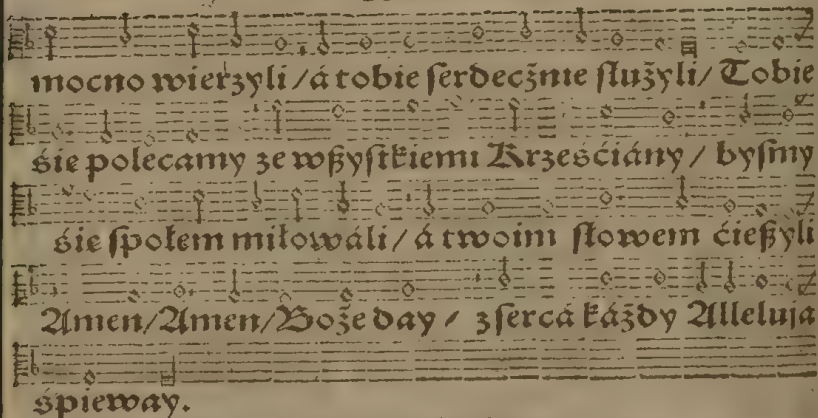 mocno wierzyli / á tobie ſerdecżnie ſłużyli / Tobie
śie polecamy ze wßyſtkiemi Krześćiány / byſmy
śie ſpołem miłowáli / á twoim ſłowem ćießyli
Amen / Amen / Boże day / z ſercá káżdy Alleluja
śpieway.